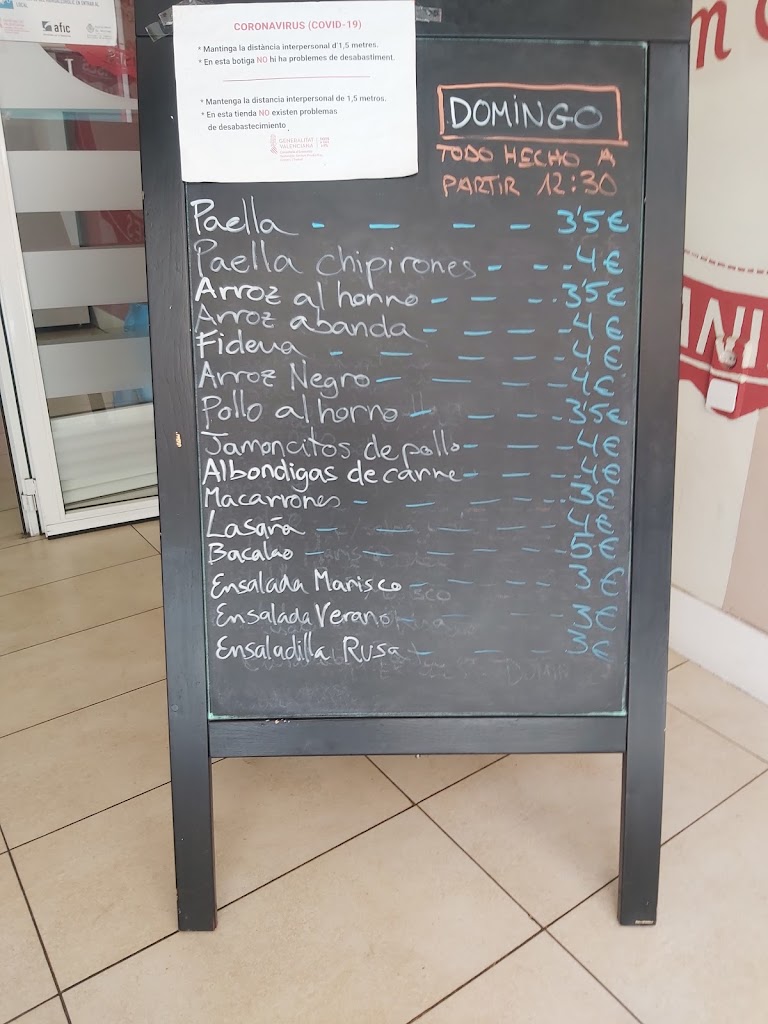 LOCAL
afic
CORONAVIRUS (COVID-19)
* Mantinga la distància interpersonal d'1,5 metres.
* En esta botiga NO hi ha problemes de desabastiment.
* Mantenga la distancia interpersonal de 1,5 metros.
* En esta tienda NO existen problemas
de desabastecimiento
GENERALITAT
VALENCIANA
DOMINGO
TODO HECHO A
PARTIR 12:30
Paella - - - - 3'5€
Paella chipirones - - - 4€
Arroz al horno - - - - 3'5€
Arroz abanda - - - - 4€
Fideua - - - - 4€
Arroz Negro - - - - 4€
Pollo al horno - - - - 3'5€
Jamoncitos de pollo - - - 4€
Albondigas de carne - - - 4€
Macarrones - - - - 3€
Lasaña - - - - - 4€
Bacalao - - - - - 5€
Ensalada Marisco - - - - 3€
Ensalada Verano - - - - 3€
Ensaladilla Rusa - - - - 3€